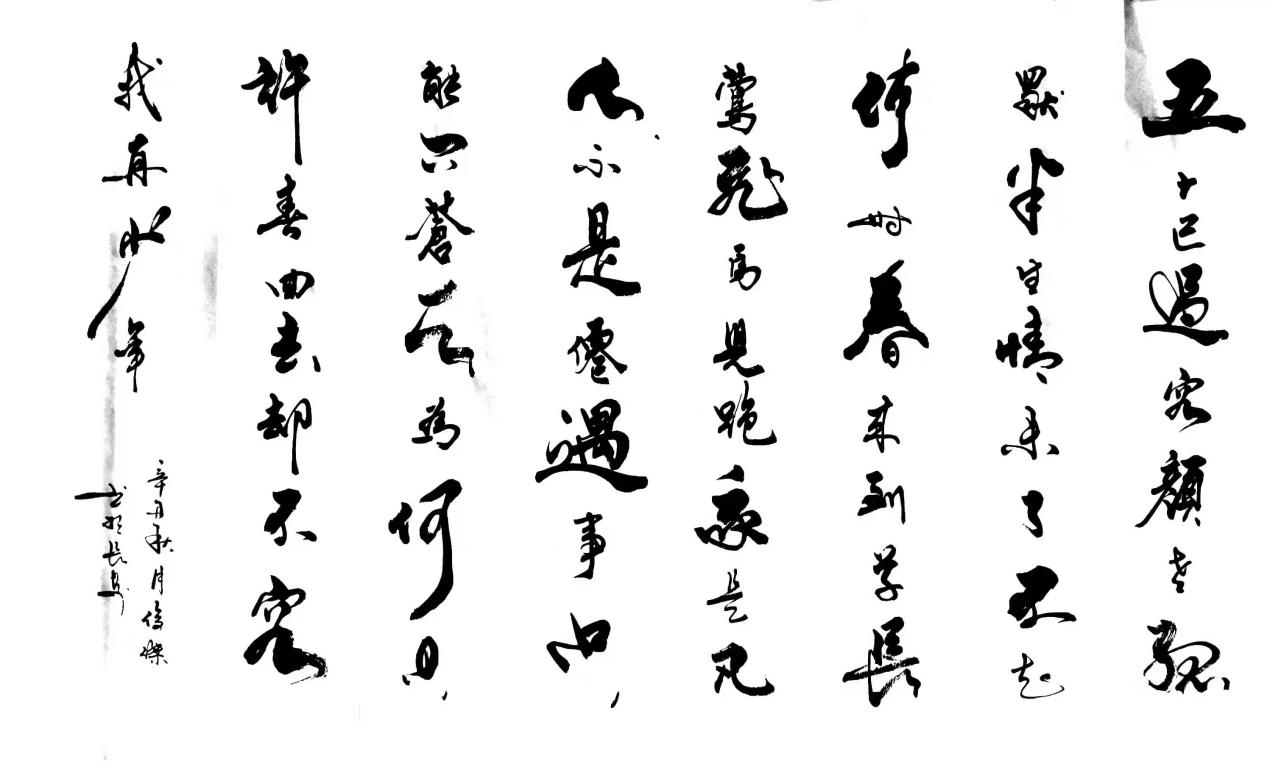 五十已過容顏老默
默半生情未了不知
何時春來到草長
鶯飛馬兒跑我是凡
人不是僊遇事只
能問蒼天為何只
許春回去却不容
我再少年
辛丑秋月俊
書於長安